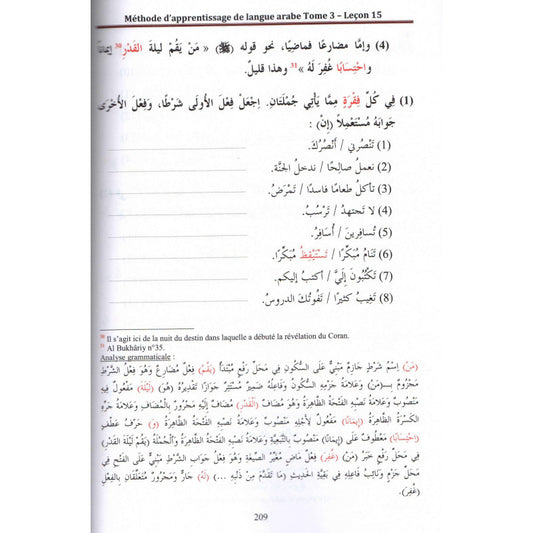 Méthode d'apprentissage de langue arabe Tome 3 – Leçon 15
(4) وإمَّا مضارعًا فماضيًا، نحو قوله (ﷺ) « مَنْ يَقُمْ ليلةَ القَدْرِ30 إيمَانًا
واحْتِسَابًا غُفِرَ لَهُ »31 وهذا قليلٌ.
(1) فِي كُلِّ فِقْرَةٍ مِمَّا يَأْتِي جُمْلَتَانِ. اِجْعَلْ فِعْلَ الْأُولَى شَرْطًا، وَفِعْلَ الْأُخْرَى
جَوَابَهُ مُسْتَعْمِلاً (إِنْ) :
(1) تَنْصُرنِي / أَنْصُرُكَ.
(2) نعملُ صالِحًا / ندخلُ الجنَّة.
(3) تأكلُ طعامًا فاسدًا / تَمْرَضُ.
(4) لا تجتهدُ / تَرْسُبُ.
(5) تُسافِرينَ / أُسَافِرُ.
(6) تَنَامُ مُبَكِّرًا / تَسْتَيْقِظُ مُبَكِّرًا.
(7) تَكْتُبُونَ إِلَيَّ / أكتبُ إليكم.
(8) تَغِيبُ كثيرًا / تَفُوتُكَ الدروسُ.
30 Il s'agit ici de la nuit du destin dans laquelle a débuté la révélation du Coran.
31 Al Bukhâriy n°35.
Analyse grammaticale :
(مَنْ) اِسْمُ شَرْطٍ جَازِمٌ مَبْنِيٌّ عَلَى السُّكُونِ فِي مَحَلِّ رَفْعٍ مُبْتَدَأٌ (يَقُمْ) فِعْلٌ مُضَارِعٌ وَهُوَ فِعْلُ الشَّرْطِ
مَجْزُومٌ بِـ(مَنْ) وَعَلَامَةُ جَزْمِهِ السُّكُونُ وَفَاعِلُهُ ضَمِيرٌ مُسْتَتِرٌ جَوَازًا تَقْدِيرُهُ (هُوَ) (لَيْلَةَ) مَفْعُولٌ فِيهِ
مَنْصُوبٌ وَعَلَامَةُ نَصْبِهِ الْفَتْحَةُ الظَّاهِرَةُ وَهُوَ مُضَافٌ (الْقَدْرِ) مُضَافٌ إِلَيْهِ مَجْرُورٌ بِالْمُضَافِ وَعَلَامَةُ جَرِّهِ
الْكَسْرَةُ الظَّاهِرَةُ (إِيمَانًا) مَفْعُولٌ لِأَجْلِهِ مَنْصُوبٌ وَعَلَامَةُ نَصْبِهِ الْفَتْحَةُ الظَّاهِرَةُ (وَ) حَرْفُ عَطْفٍ
(احْتِسَابًا) مَعْطُوفٌ عَلَى (إِيمَانًا) مَنْصُوبٌ بِالتَّبَعِيَّةِ وَعَلَامَةُ نَصْبِهِ الْفَتْحَةُ الظَّاهِرَةُ وَالْجُمْلَةُ (يَقُمْ لَيْلَةَ الْقَدْرِ)
فِي مَحَلِّ رَفْعٍ خَبَرُ (مَنْ) (غُفِرَ) فِعْلٌ مَاضٍ مُغَيَّرُ الصِّيغَةِ وَهُوَ فِعْلُ جَوَابِ الشَّرْطِ مَبْنِيٌّ عَلَى الْفَتْحِ فِي
مَحَلِّ جَزْمٍ وَنَائِبُ فَاعِلِهِ فِي بَقِيَّةِ الْحَدِيثِ (مَا تَقَدَّمَ مِنْ ذَنْبِهِ ...) (لَهُ) جَارٌّ وَمَجْرُورٌ مُتَعَلِّقَانِ بِالْفِعْلِ
(غُفِرَ).
209